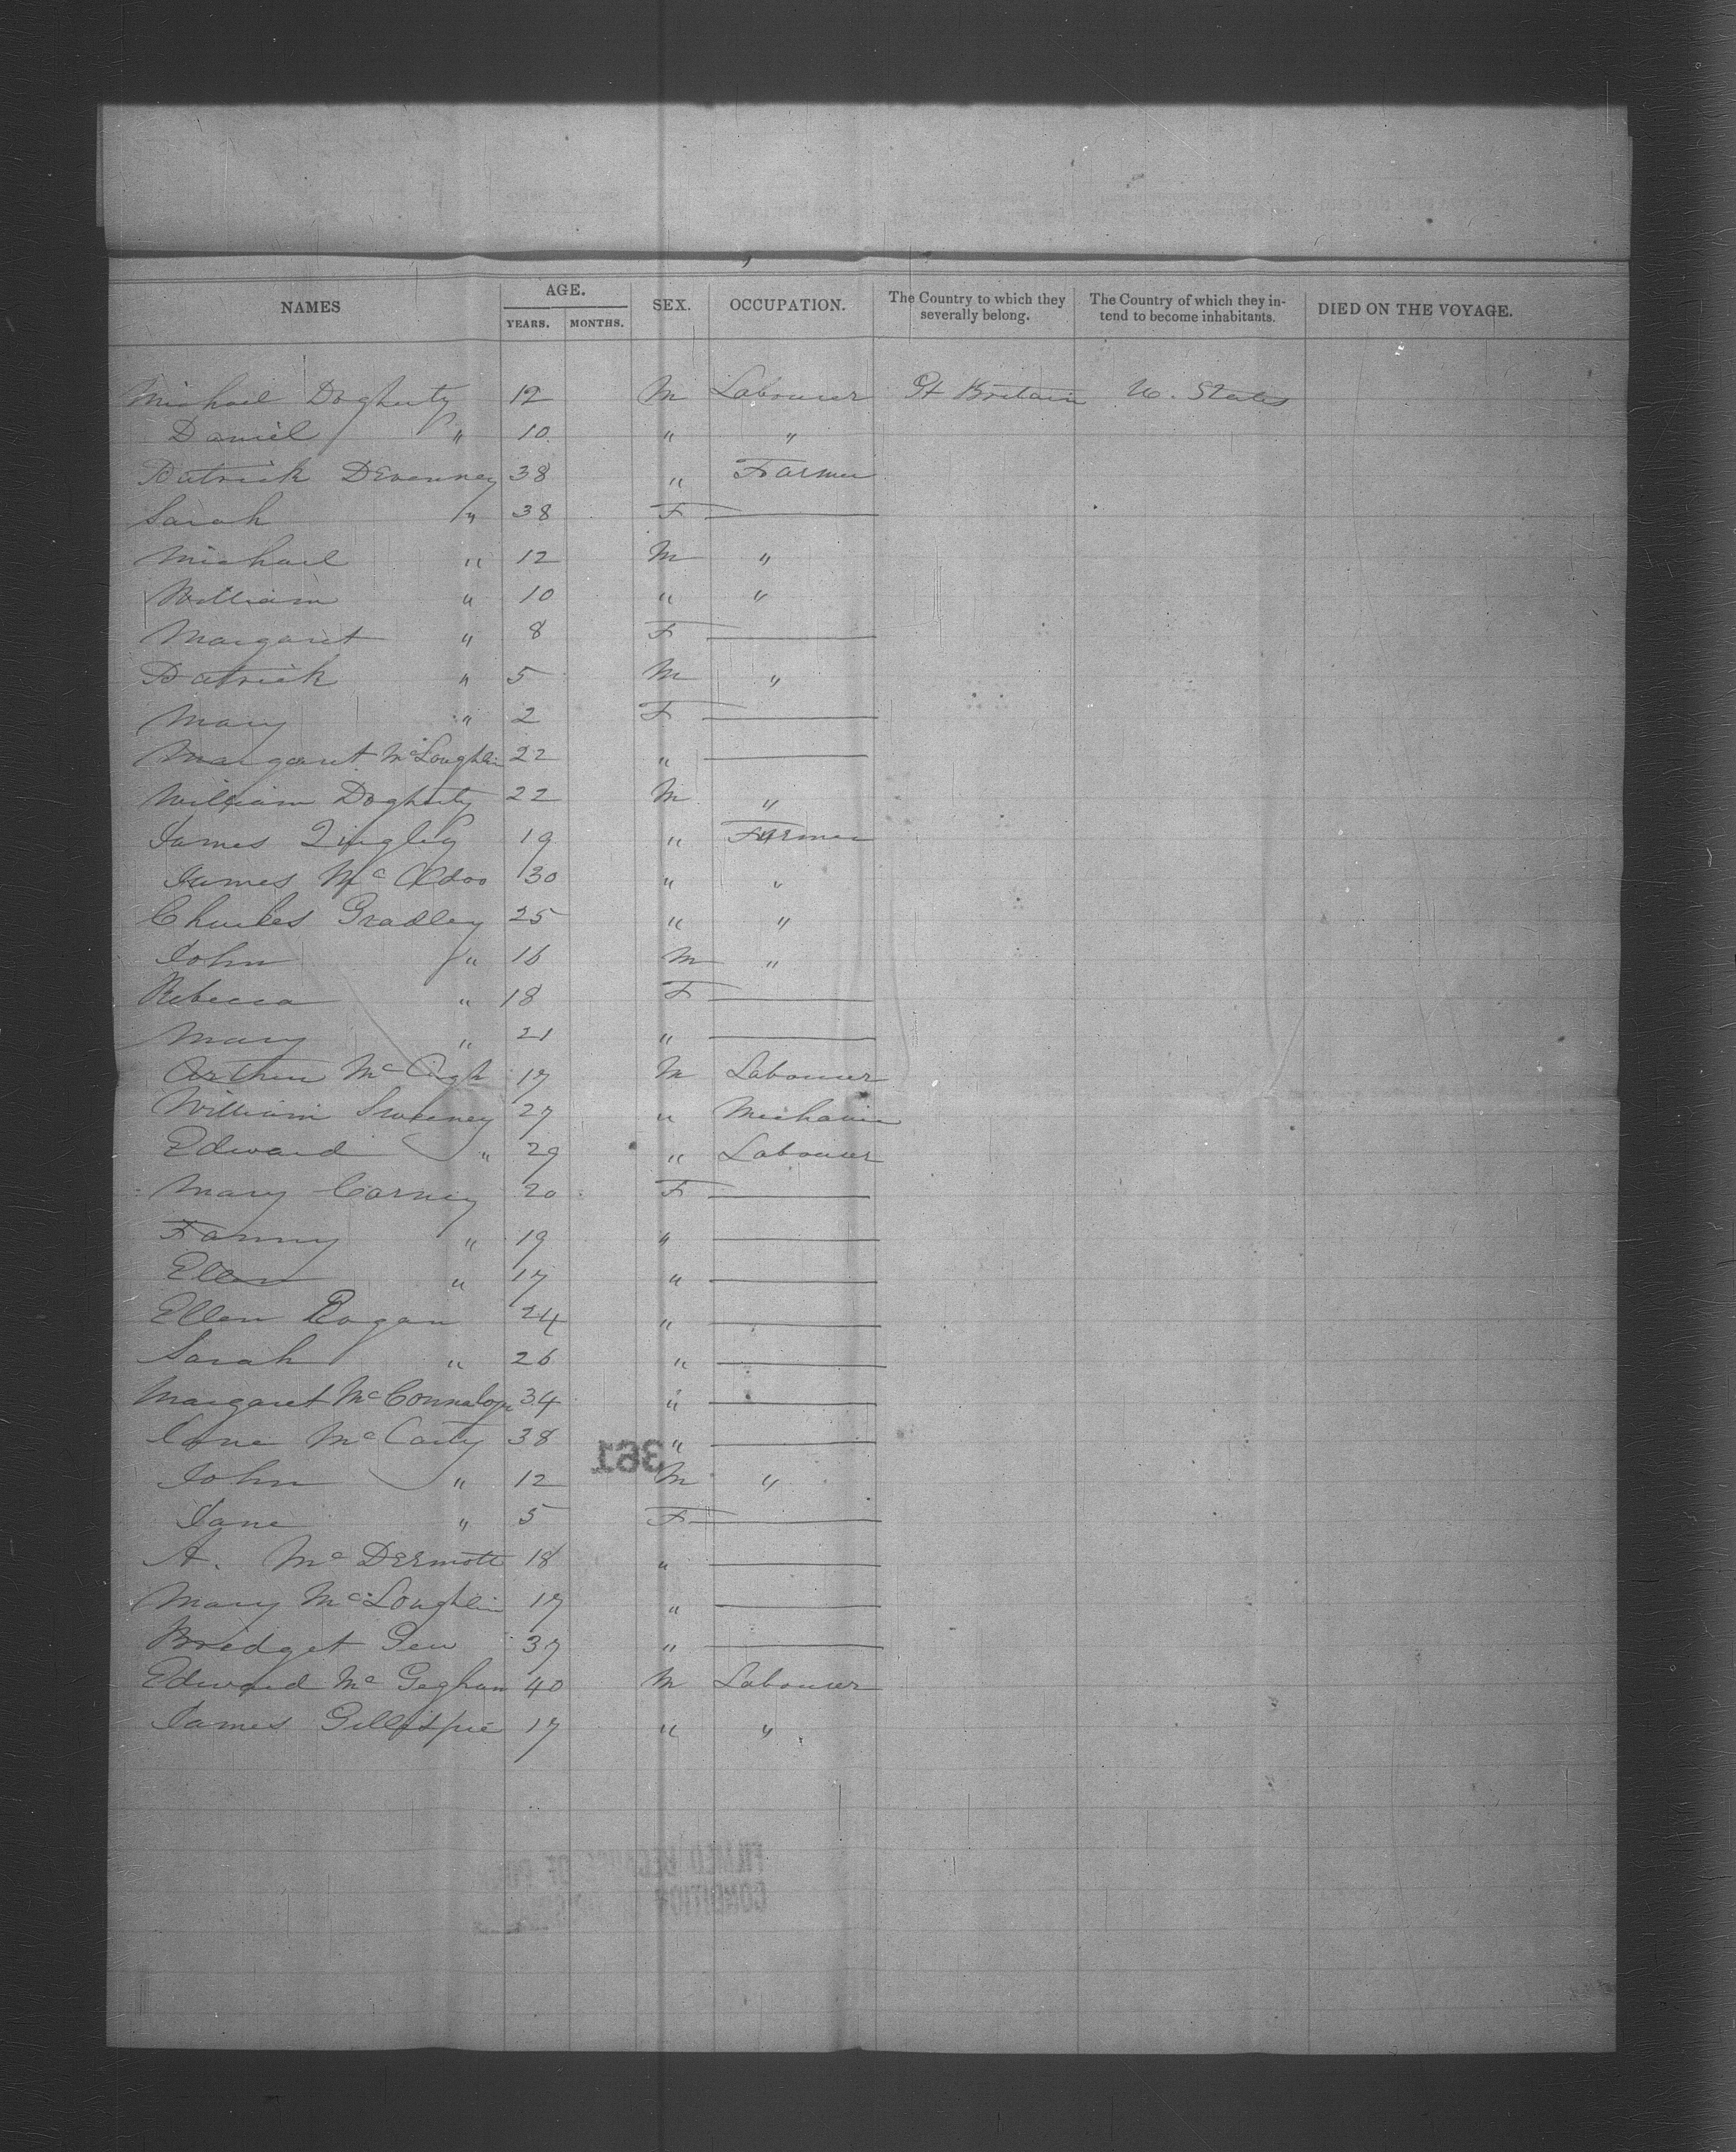 NAMES AGE. YEARS. MONTHS. SEX. OCCUPATION. The Country to which they severally belong. The Country of which they intend to become inhabitants. DIED ON THE VOYAGE.
Michael Dogherty 12 M Labourer Gt Britain U. States
Daniel " 10 " "
Patrick DEvenney 38 " Farmer
Sarah " 38 F
Michael " 12 M "
William " 10 " "
Margaret " 8 F
Patrick " 5 M "
Mary " 2 F
Margaret McLoughlin 22 "
William Dogherty 22 M "
James 19 " Farmer
James McAdoo 30 " "
Charles Gradley 25 " "
John " 16 M "
Rebecca " 18 F
Mary " 21 "
Arthur 17 M Labourer
William Sweeney 27 " Mechanic
Edward " 29 " Labourer
Mary Carney 20 F
Fanny " 19 "
Ellen " 17 "
Ellen Rogan 24 "
Sarah " 26 "
Margaret 34 "
Jane McCarty 38 "
361
John " 12 M "
Jane " 5 F
A. McDermott 18 "
Mary McLoughlin 17 "
Bridget 37 "
Edward McGeghan 40 M Labourer
James Gillispie 17 " "
FILMED BECAUSE OF
CONDITION